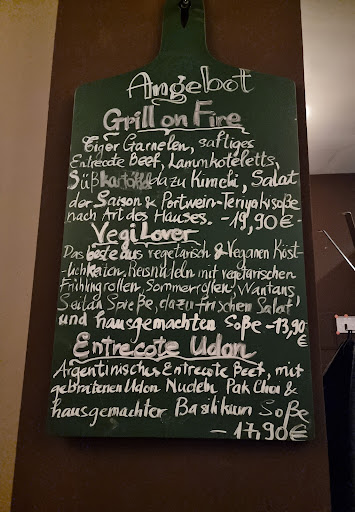 Angebot
Grill on Fire
Tiger Garnelen, saftiges
Entrecote Beef, Lammkoteletts,
Süßkartoffel dazu Kimchi, Salat
der Saison & Portwein-Teriyakisoße
nach Art des Hauses. -19,90€-
Vegi Lover
Das beste aus vegetarisch & Veganen Köst-
lichkeiten, Reisnudeln mit vegetarischen
Frühlingrollen, Sommerrollen, Wantans,
Seitan Spieße, dazu frischen Salat
und hausgemachten Soße -13,90€
Entrecote Udon
Argentinisches Entrecote Beef, mit
gebratenen Udon Nudeln Pak Choi &
hausgemachter Basilikum Soße
- 17,90€